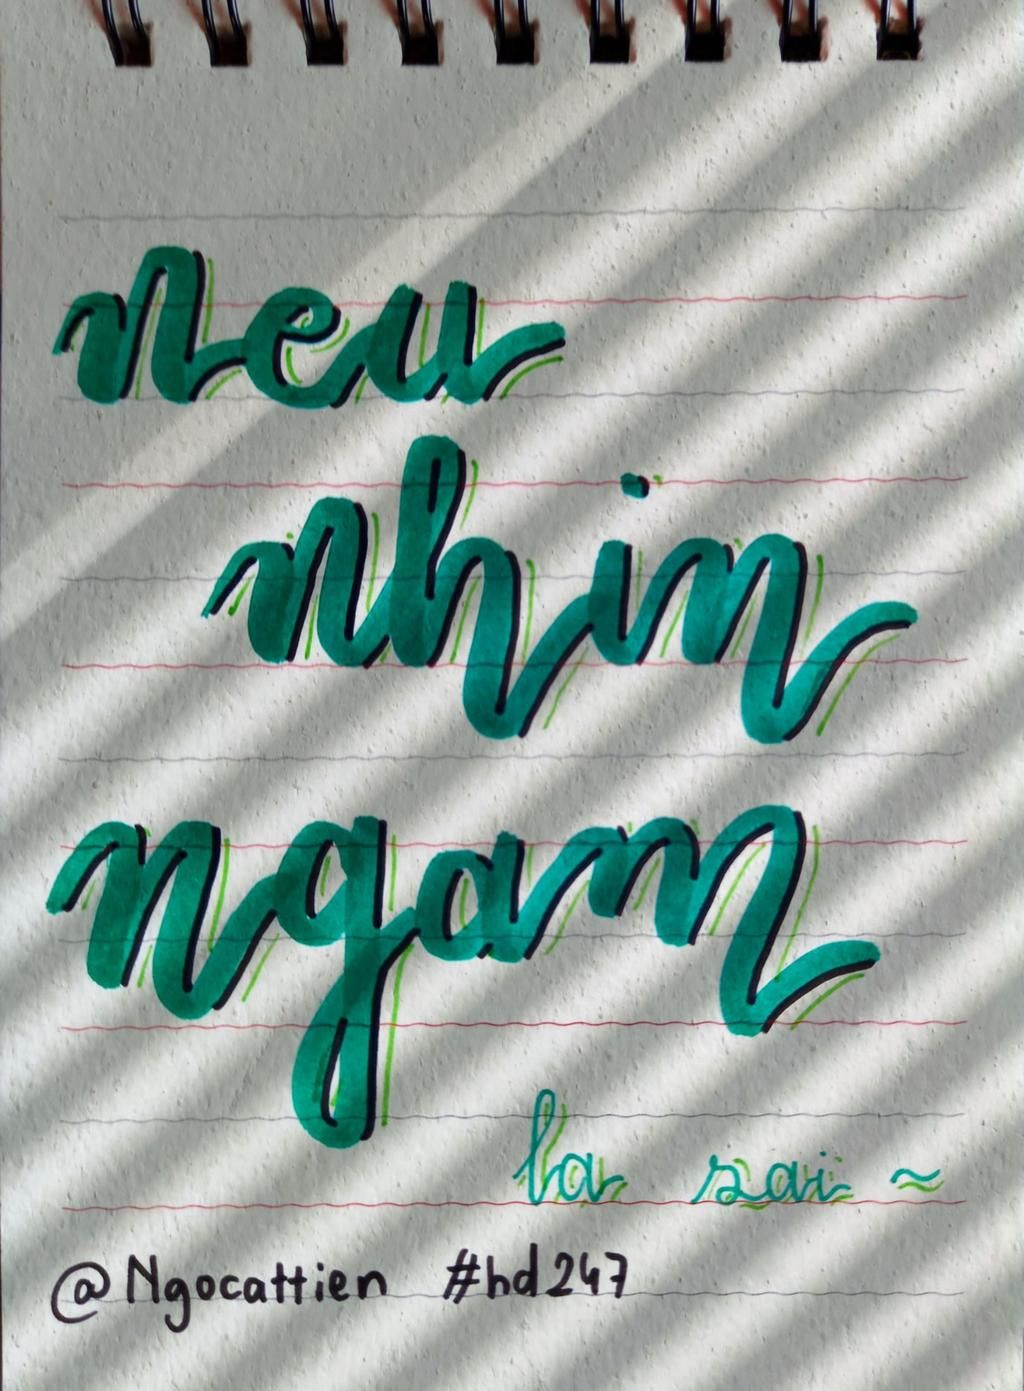 neu
nhin
ngam
la sai ~
@Ngocattien #hd247